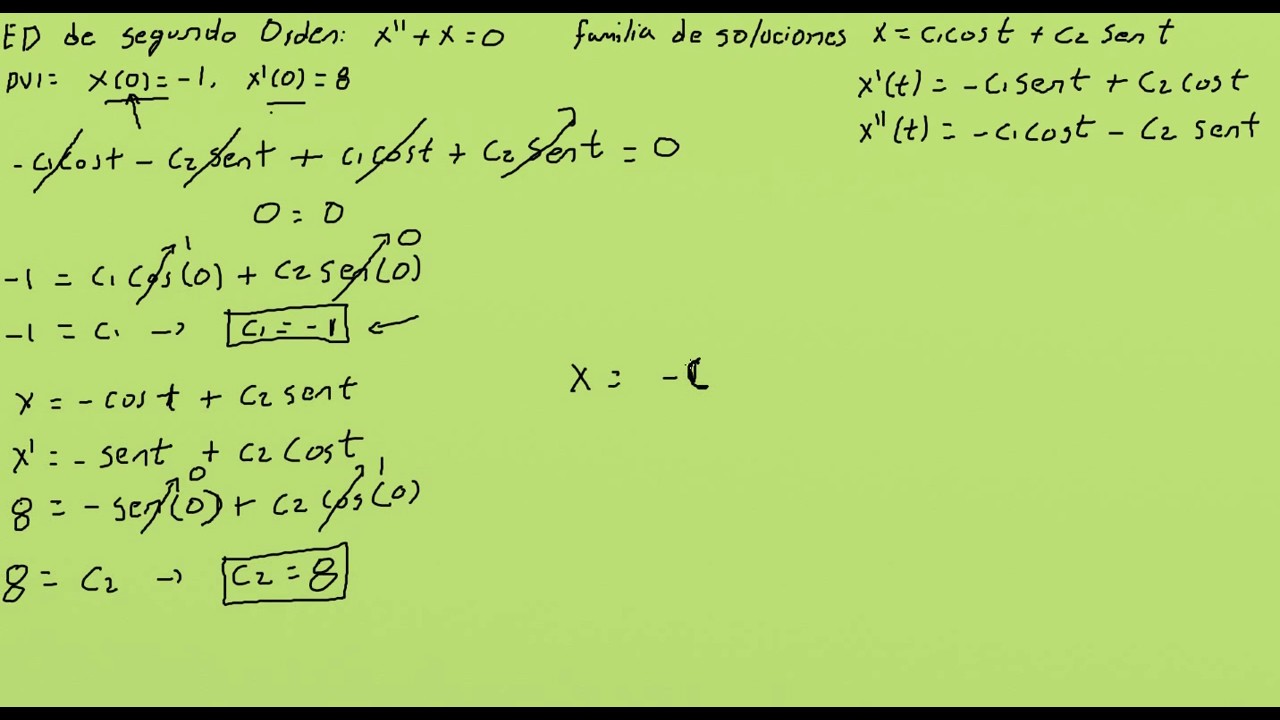 ED de segundo Orden: x'' + x = 0 familia de soluciones x = c₁cost + c₂ sent
PVI: x(0) = -1, x'(0) = 8
x'(t) = -c₁sent + c₂cost
x''(t) = -c₁cost - c₂ sent
-c₁cost - c₂sent + c₁cost + c₂sent = 0
0 = 0
1 0
-1 = c₁cos(0) + c₂sen(0)
-1 = c₁ → c₁ = -1 ←
x = -cost + c₂sent
x = -c
x' = -sent + c₂cost
0 1
8 = -sen(0) + c₂cos(0)
8 = c₂ → c₂ = 8